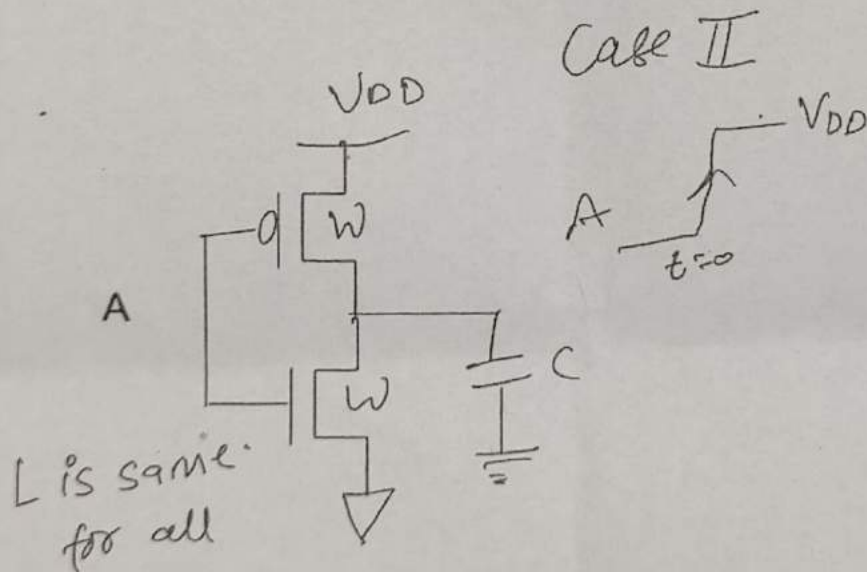 Case II
VDD
VDD
A
t=0
W
A
C
W
L is same.
for all